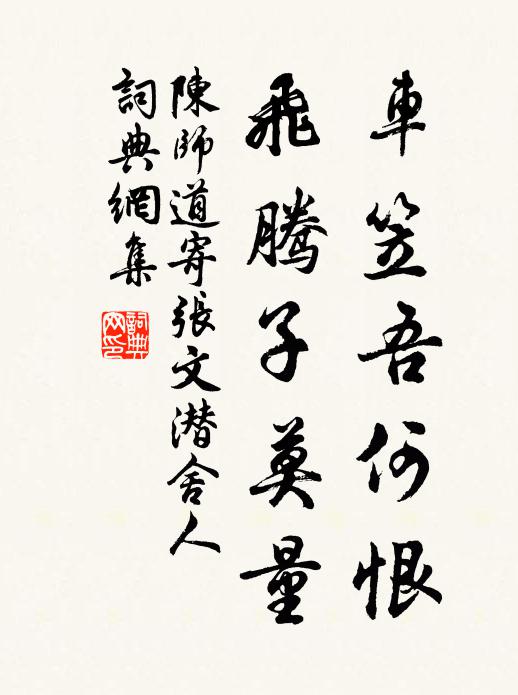 車笠吾何恨
飛騰子莫量
陳師道寄張文潜舍人
詞典網集
詞典
网印